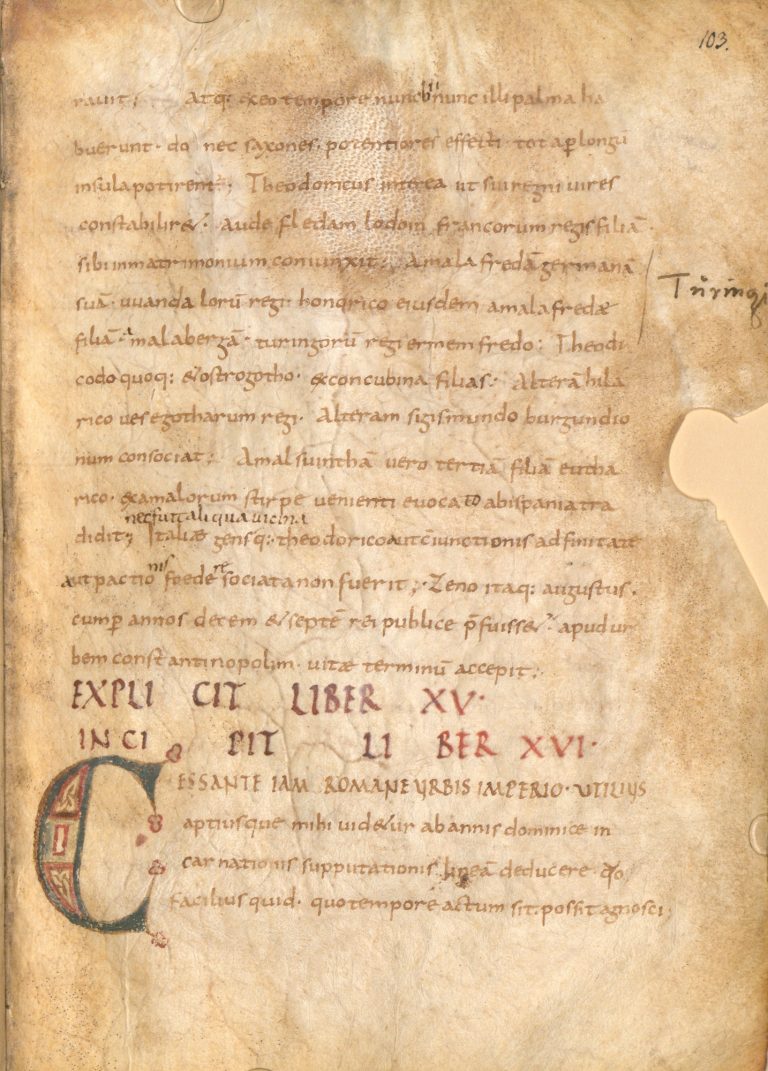 103.
rauit; Atq; exeo tempore nunc hii nunc illi palma ha
buerunt · do nec saxones · potentiores effecti tot a ꝑ longū
insula potirent; Theodoricus interea ut sui regni uires
constabiliret · Aude fledam lodoin francorum regis filiā
sibi in matrimonium coniunxit; Amala fredā germanā
suā · uuanda lorū regi · honorico eiusdem amala fredæ
Türingi
filiā · amalabergā · turingorū regi ermem fredo; Theodi
codo quoq; & ostrogotho · ex concubina filias; Alterā hila
rico uesegotharum regi · Alteram sigismundo burgundio
num consociat; Amalsuinthā uero tertiā filiā eutha
rico · ex amalorum stirpe uenienti euocato ab ispania tra
nec fuit aliqua uicina
didit; Italiæ gensq; theodorico aut ciunctionis adfinitate
aut pactionis foedere sociata non fuerit; Zeno itaq; augustus ·
cum ꝑ annos decem & septē rei publice p̄fuisset · apud ur
bem constantinopolim · uitæ terminū accepit;
EXPLI CIT LIBER XV·
INCI PIT LI BER XVI·
CESSANTE IAM ROMANE URBIS IMPERIO · UTILIUS
aptiusque mihi uidetur ab annis dominice in
carnationis supputationis lineā deducere · qo
facilius quid · quo tempore actum sit · possit agnosci;